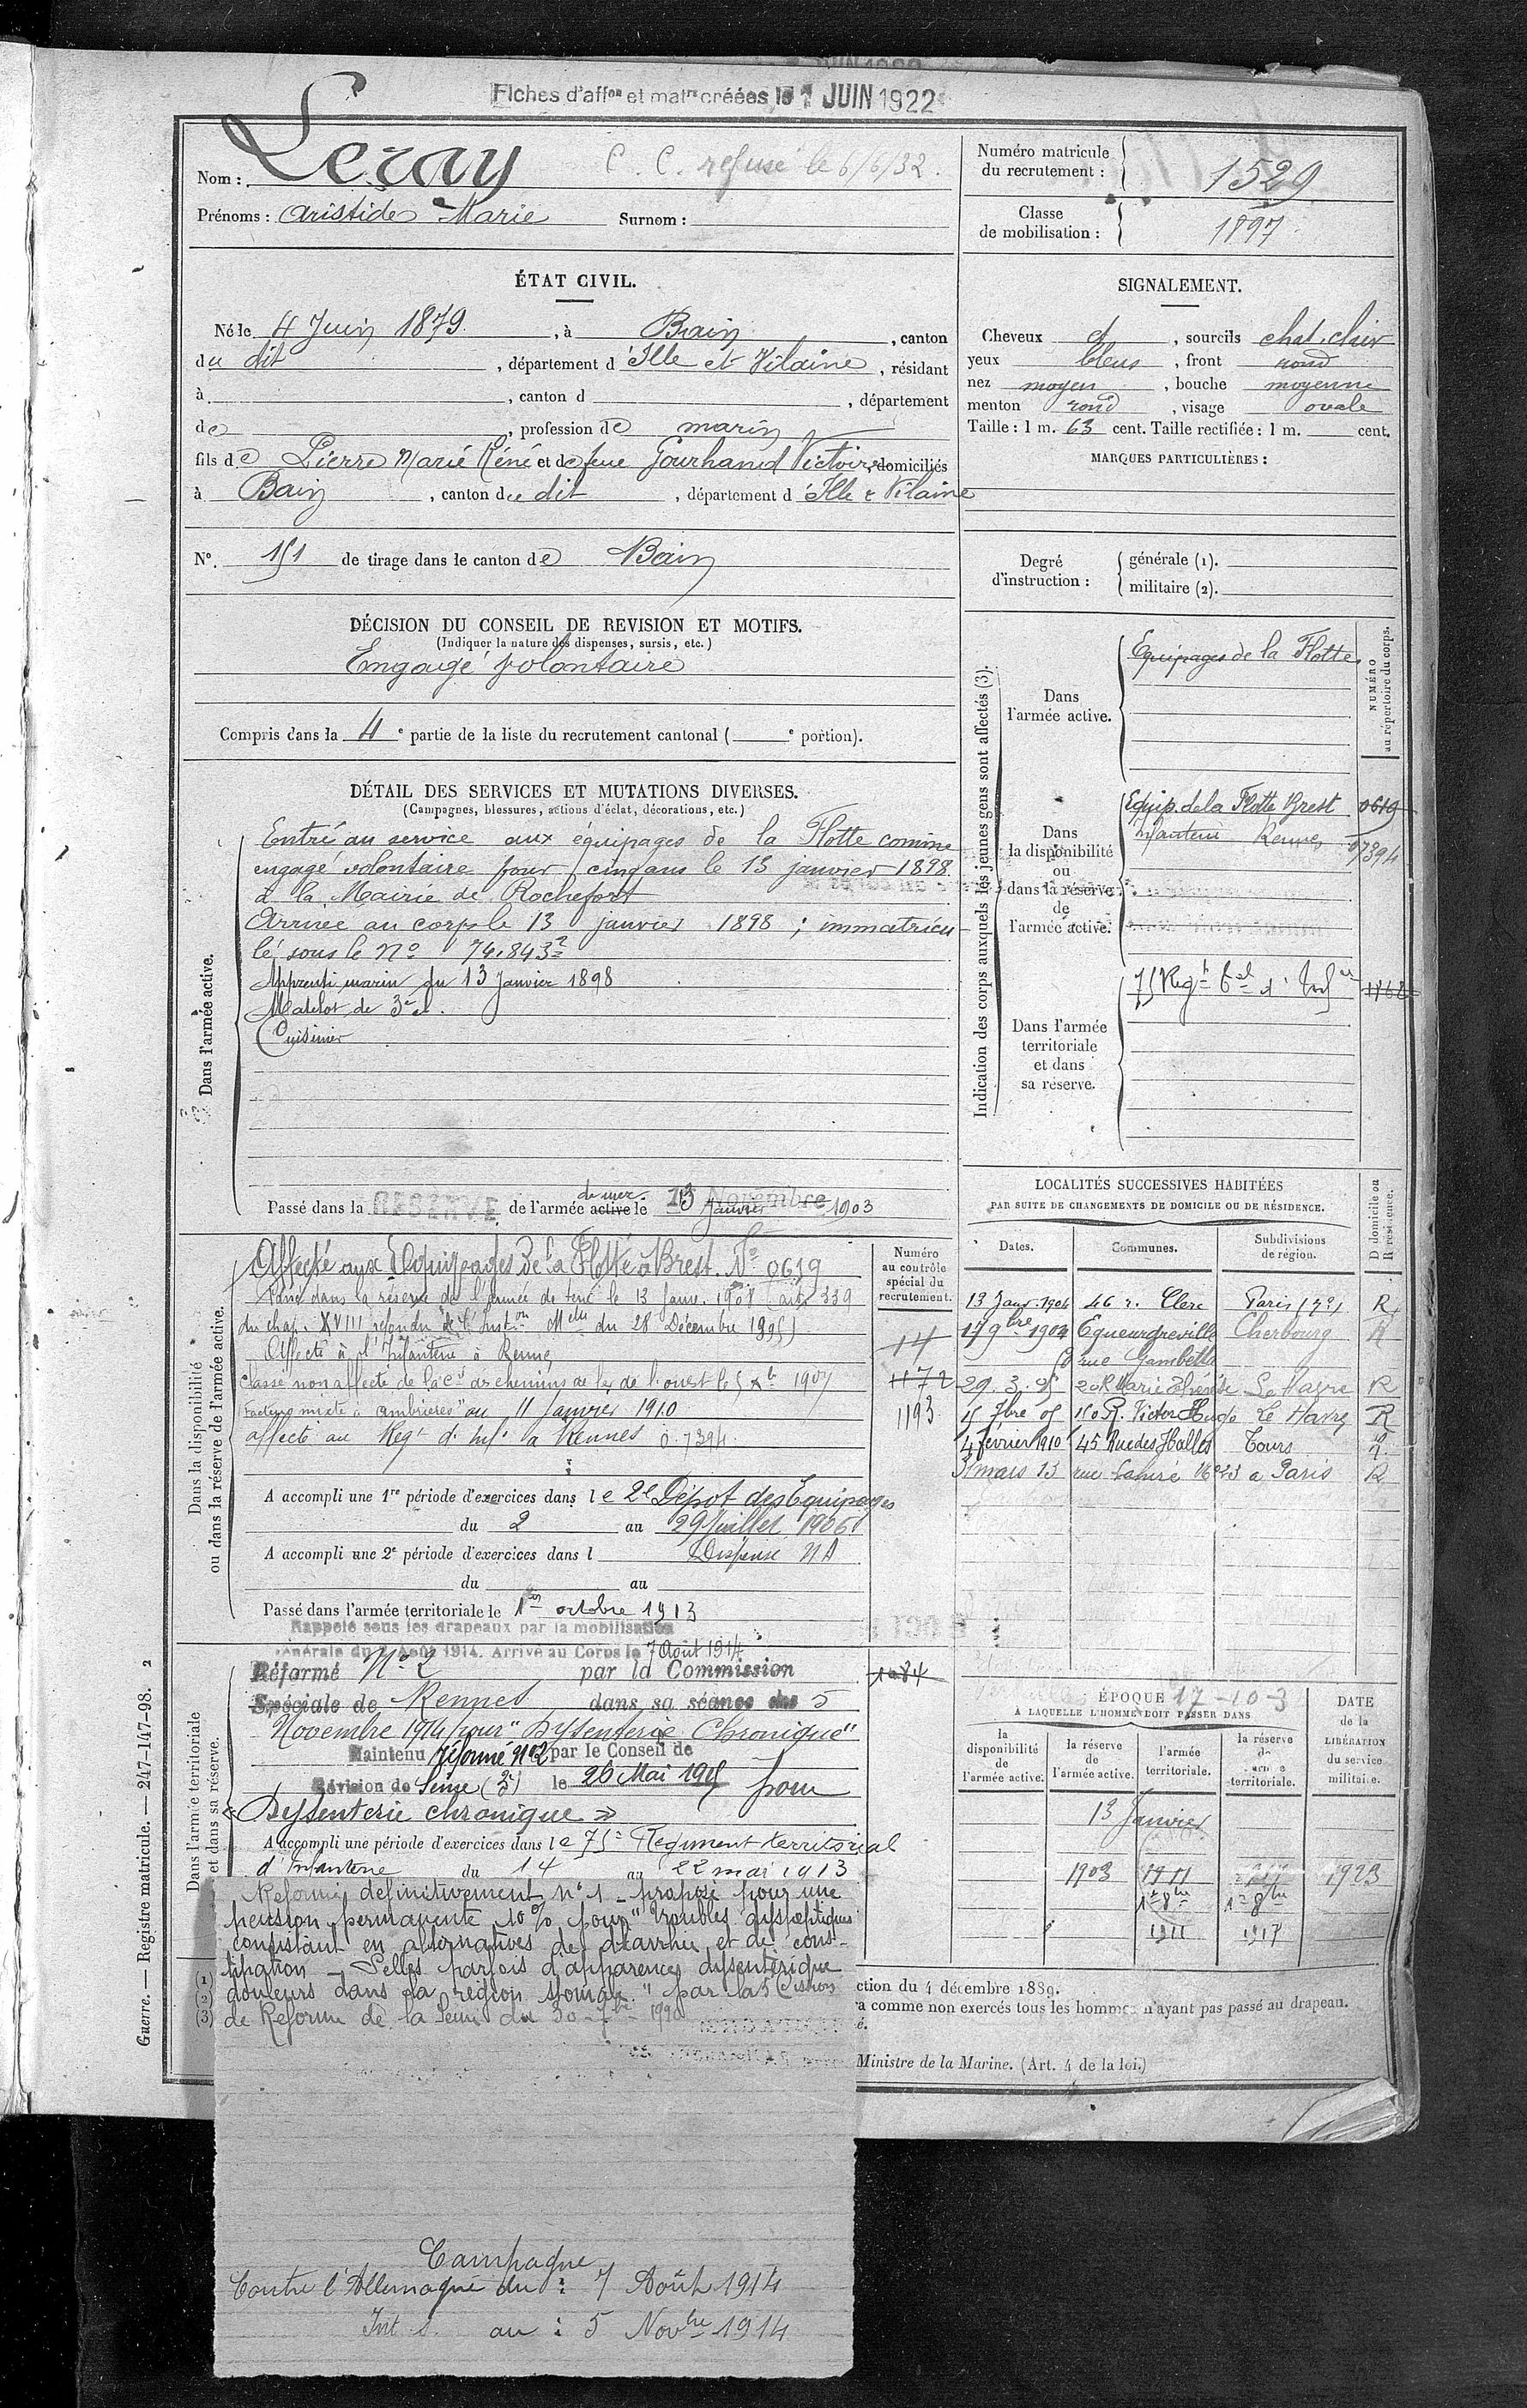 Fiches d'affon et matre créées le 1 JUIN 1922
Nom : Leray C. C. refusé le 6/6/32.
Prénoms : Aristide Marie Surnom :
Numéro matricule du recrutement : 1529
Classe de mobilisation : 1897
ÉTAT CIVIL.
Né le 4 Juin 1879, à Bain, canton
du dit, département d'Ille et Vilaine, résidant
à , canton d , département
de , profession de marin
fils de Pierre Marie Réné et de feue Gourhand Victoire, domiciliés
à Bain, canton du dit, département d'Ille & Vilaine
N°. 151 de tirage dans le canton de Bain
SIGNALEMENT.
Cheveux et, sourcils chat. clair
yeux bleus, front rond
nez moyen, bouche moyenne
menton rond, visage ovale
Taille : 1 m. 63 cent. Taille rectifiée : 1 m. cent.
MARQUES PARTICULIÈRES :
Degré d'instruction :
générale (1).
militaire (2).
DÉCISION DU CONSEIL DE REVISION ET MOTIFS.
(Indiquer la nature des dispenses, sursis, etc.)
Engagé volontaire
Compris dans la 4e partie de la liste du recrutement cantonal ( e portion).
DÉTAIL DES SERVICES ET MUTATIONS DIVERSES.
(Campagnes, blessures, actions d'éclat, décorations, etc.)
Dans l'armée active.
Entré au service aux équipages de la Flotte comme
engagé volontaire pour cinq ans le 13 janvier 1898
à la Mairie de Rochefort
Arrivé au corps le 13 janvier 1898 ; immatricu
lé sous le No 74.843
Apprenti marin du 13 Janvier 1898
Matelot de 3e cl.
Cuisinier
Passé dans la RÉSERVE de l'armée active de mer le 13 Novembre Janvier 1903
Indication des corps auxquels les jeunes gens sont affectés (3).
NUMÉRO au répertoire du corps.
Dans l'armée active.
Equipages de la Flotte
Dans la disponibilité ou dans la réserve de l'armée active.
Equip. de la Flotte Brest 0619
Infanterie Rennes 07394
Dans l'armée territoriale et dans sa réserve.
75 Regt tal d'Infie 1162
Dans la disponibilité ou dans la réserve de l'armée active.
Numéro au contrôle spécial du recrutement.
Affecté aux Equipages de la Flotte à Brest. No 0619
Passé dans la réserve de l'armée de terre le 13 Janv. 1908 (arte 339
du chap. XVIII refondu de l'Inston Melle du 28 Décembre 1895)
Affecté à l'Infanterie à Rennes
Classé non affecté de la Cie des chemins de fer de l'ouest le 5 Xbre 1907
Facteur mixte à Ambrières au 11 Janvier 1910
affecté au Regt d'Inf. à Rennes 0.7394.
14
1172
1193
A accompli une 1re période d'exercices dans le 2e Dépot des Equipages
du 2 au 29 Juillet 1906
A accompli une 2e période d'exercices dans l Dispensé NA
du au
Passé dans l'armée territoriale le 1er octobre 1913
LOCALITÉS SUCCESSIVES HABITÉES
PAR SUITE DE CHANGEMENTS DE DOMICILE OU DE RÉSIDENCE.
Dates. Communes. Subdivisions de région. D. domicile ou R. résidence.
13 Janv. 1904 46 r. Clerc Paris (7e) R
17 9bre 1904 Equeurdreville Cherbourg R
rue Gambetta
29. 3. 05 20 R Marie Thérèse Le Havre R
15 7bre 05 150 R. Victor Hugo Le Havre R
4 février 1910 45 Rue des Halles Tours R
31 mars 13 rue No 23 à Paris R
Dans l'armée territoriale et dans sa réserve.
Rappelé sous les drapeaux par la mobilisation
générale du 2 Août 1914. Arrivé au Corps le 7 Août 1914
Réformé No 2 par la Commission 1084
Spéciale de Rennes dans sa séance du 5
Novembre 1914 pour "Dysenterie Chronique"
Maintenu réformé No 2 par le Conseil de
Révision de Seine (3e) le 26 Mai 1915 pour
« Dyssenterie chronique »
A accompli une période d'exercices dans le 75e Régiment territorial
d'Infanterie du 14 au 22 mai 1913
ÉPOQUE 17-10-3
À LAQUELLE L'HOMME DOIT PASSER DANS
la disponibilité de l'armée active.
la réserve de l'armée active.
l'armée territoriale.
la réserve de l'armée territoriale.
DATE de la LIBÉRATION du service militaire.
13 Janvier
1903 1911 1917 1923
1er 8bre 1er 8bre
1911 1917
Réformé définitivement n° 1 - proposé pour une
pension permanente 10% pour "troubles dyspeptiques
consistant en alternatives de diarrhée et de cons-
tipation - Selles parfois d'apparence dysentérique
douleurs dans la région stomac." par la 5e Cission
de Réforme de la Seine du 30 - 7bre - 1920
(1)
(2)
(3)
ction du 4 décembre 1889.
ra comme non exercés tous les hommes n'ayant pas passé au drapeau.
é.
Ministre de la Marine. (Art. 4 de la loi.)
Campagne
Contre l'Allemagne du : 7 Août 1914
Int. S. au : 5 Novbre 1914
Guerre. — Registre matricule. — 247-147-98. 2